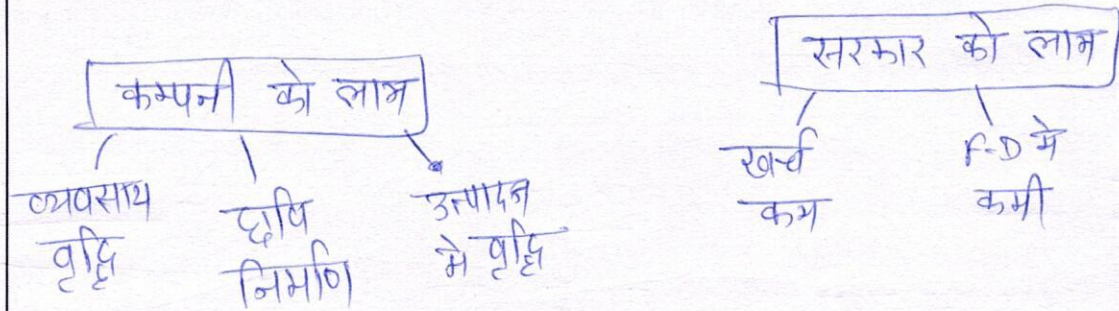 कम्पनी को लाभ
व्यवसाय वृद्धि
छवि निर्माण
उत्पादन मे वृद्धि
सरकार को लाभ
खर्च कम
F-D मे कमी